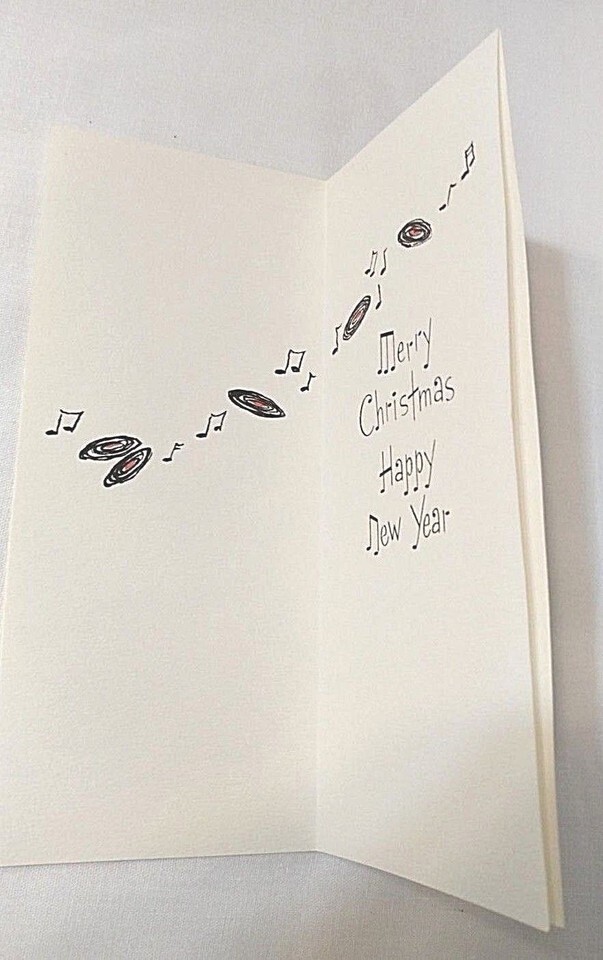 Merry
Christmas
Happy
New Year